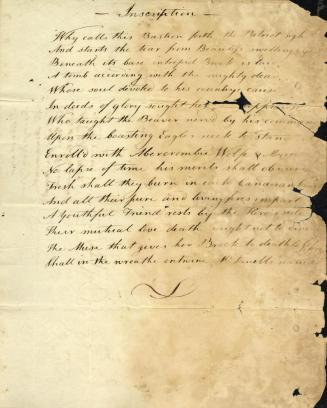 — Inscription —
Why calls this Bastion forth the Patriot sigh
And starts the tear from Beauty's swelling eye
Beneath its base intrepid Brock is laid
A tomb according with the mighty dead
Whose soul devoted to his country's cause
In deeds of glory sought
Who taught the Beaver nerv'd by his command
Upon the boasting Eagles neck to stand
Enroll'd with Abercrombie Wolfe &
No lapse of time his merits shall obscure
Fresh shall they burn in each Canadian
And all their pure and living fires impart
A Youthful Friend rests by the Hero's side
Their mutual love death sought not to divide
The Muse that gives her Brock to deathless
Shall in the wreathe entwine